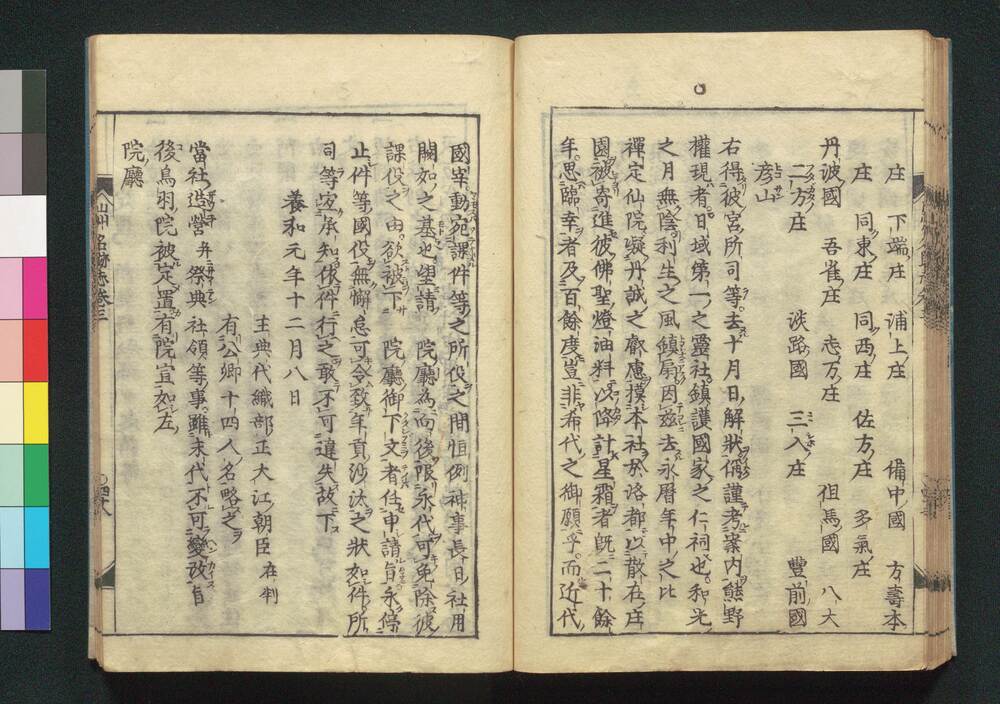 庄 下端庄 浦上庄 備中國 万壽本
庄 同東庄 同西庄 佐方庄 多氣庄
丹波國 吾雀庄 志万庄 但馬國 八太
二方庄 淡路國 三入庄 豐前國
彦山
右得彼宮所司等去十月日解狀偁謹考案内熊野
權現者日域第一之靈社鎮護國家之仁祠也和光
之月無陰利生之風鎮扇因茲去永暦年中之比
禪定仙院凝丹誠之叡慮摸本社於洛都以散在庄
園被寄進彼佛聖燈油料以降計星霜者既二十餘
年思歸幸者及百餘度豈非希代之御願乎而近代
國宰動宛課件等之所役之間恒例神事長日社用
闕如之基也望請 院廳為而後限永代可免除彼
課役之由欲被下 院廳御下文者任申請旨永停
止件等國役無懈怠可令致年貢沙汰之狀如件所
司等宜承知依件行之敢不可違失故下
養和元年十二月八日
主典代織部正大江朝臣 在判
有公卿十四人名略之
當社造營并祭典社領等事雖末代不可變改旨
後鳥羽院被定置有院宣如左
院廳
山州名跡志卷三
四十八